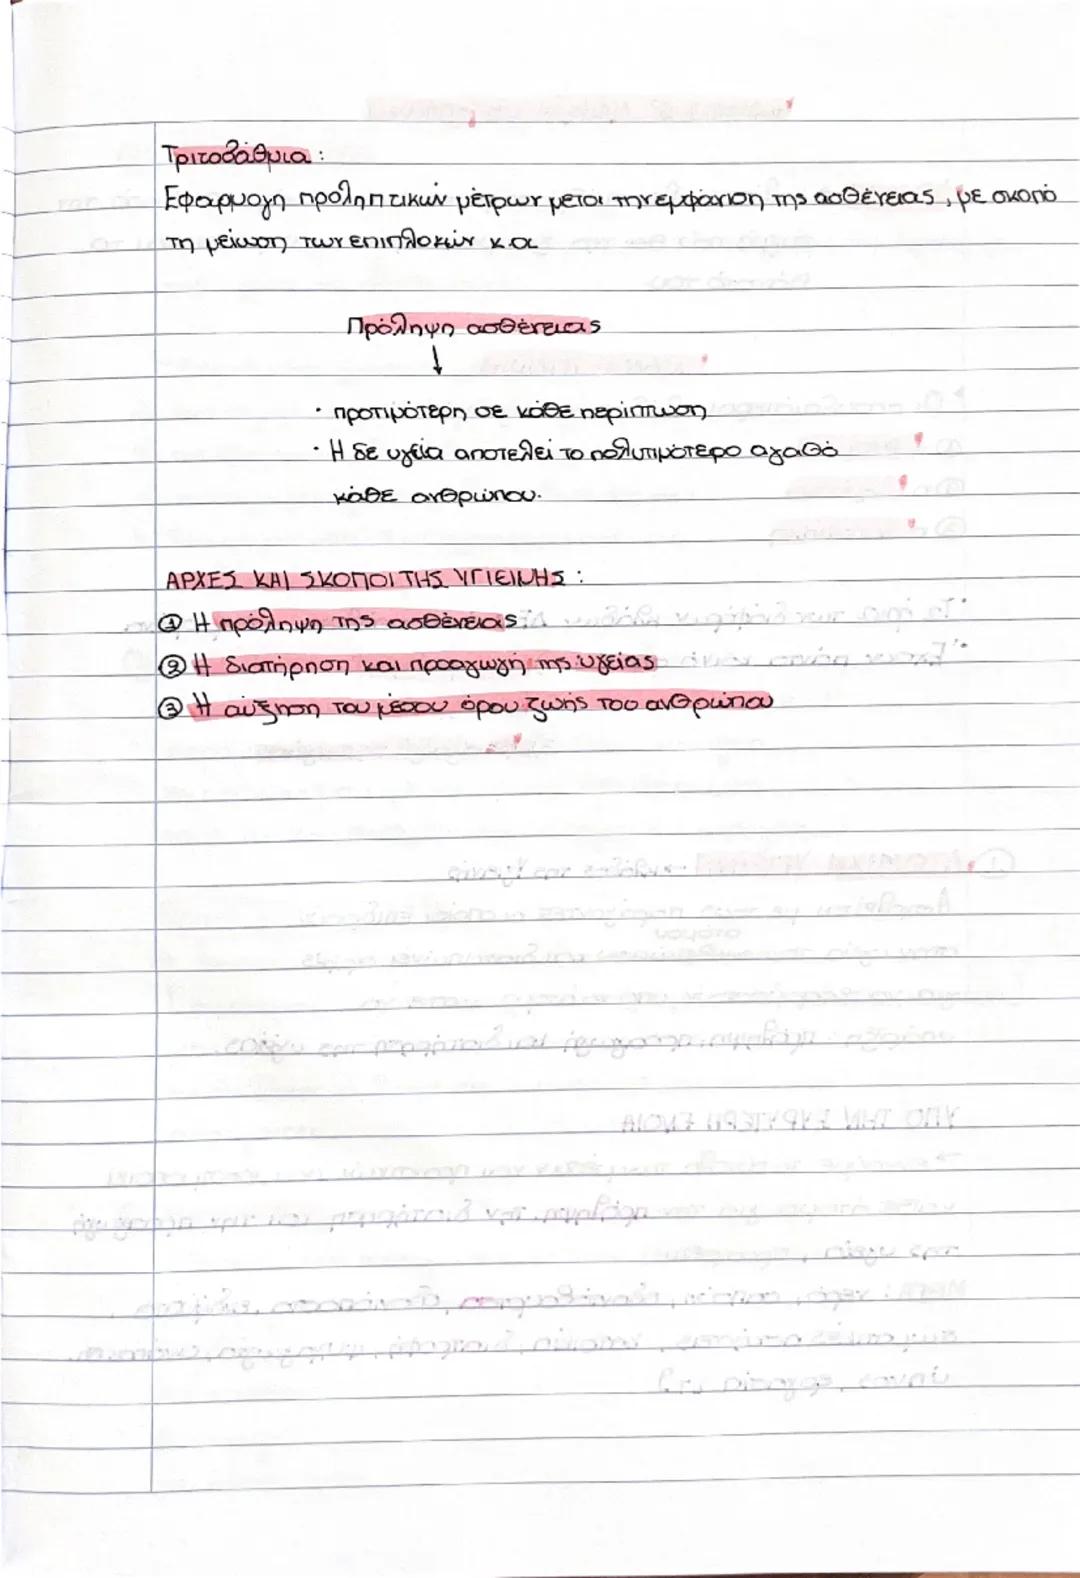 Τριτοβάθμια :
Εφαρμογή προληπτικών μέτρων μετά την εμφάνιση της ασθένειας, με σκοπό
τη μείωση των επιπλοκών κ.α
Πρόληψη ασθένειας
↓
· προτιμότερη σε κάθε περίπτωση
· Η δε υγεία αποτελεί το πολυτιμότερο αγαθό
κάθε ανθρώπου.
ΑΡΧΕΣ ΚΑΙ ΣΚΟΠΟΙ ΤΗΣ ΥΓΙΕΙΝΗΣ :
① Η πρόληψη της ασθένειας
② Η διατήρηση και προαγωγή της υγείας
③ Η αύξηση του μέσου όρου ζωής του ανθρώπου